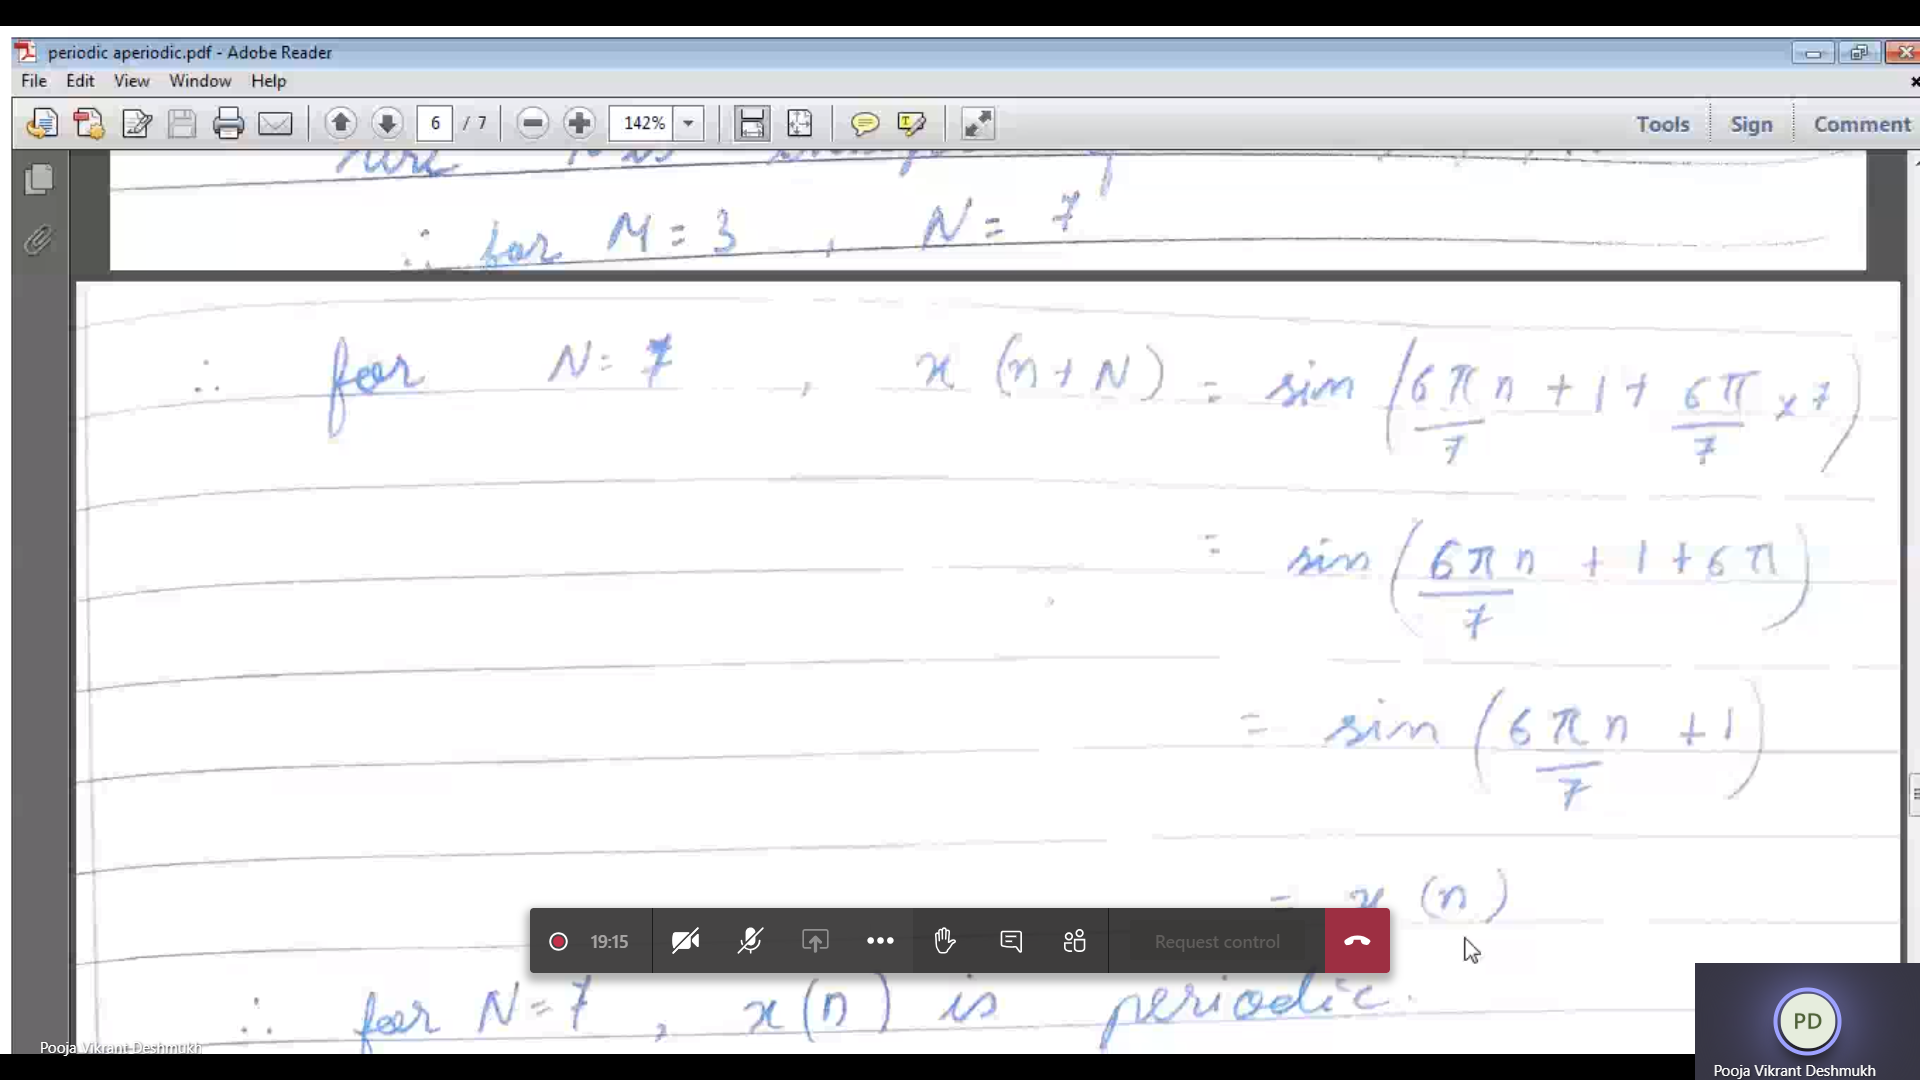 periodic aperiodic.pdf - Adobe Reader
File Edit View Window Help
6 / 7 142% Tools Sign Comment
∴ for M = 3 , N = 7
∴ for N = 7 , x (n + N) = sin (6πn/7 + 1 + 6π/7 × 7)
= sin (6πn/7 + 1 + 6π)
= sin (6πn/7 + 1)
= x (n)
19:15 Request control
∴ for N = 7 , x(n) is periodic.
Pooja Vikrant Deshmukh
PD
Pooja Vikrant Deshmukh